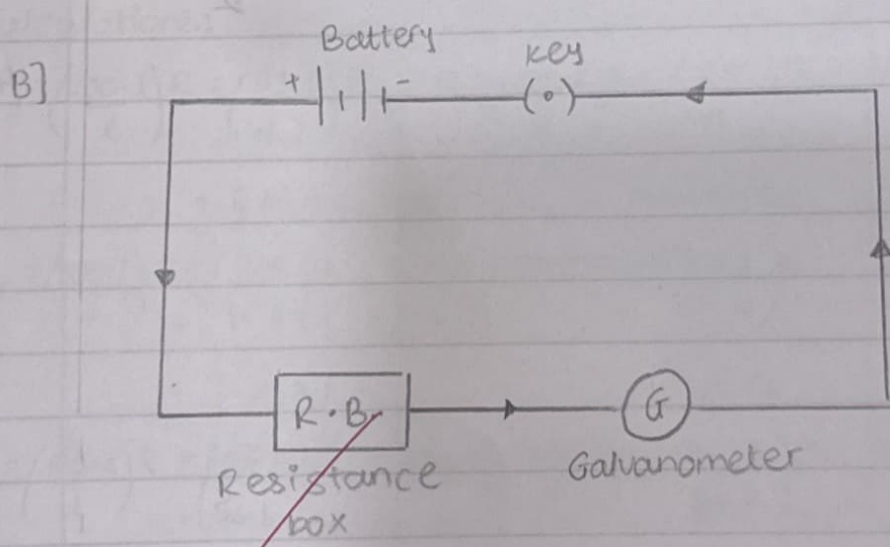 Battery
key
B]
+ -
R.B.
G
Resistance
box
Galvanometer